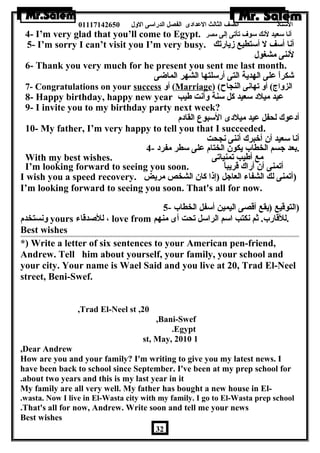 Mr.Salem Mr. Salem
الأستاذ الصف الثالث الاعدادى الفصل الدراسى الاول 01117142650
4- I’m very glad that you’ll come to Egypt. أنا سعيد لأنك سوف تأتى إلى مصر
5- I’m sorry I can’t visit you I’m very busy. أنا أسف لا أستطيع زيارتك
لأننى مشغول
6- Thank you very much for he present you sent me last month.
شكراً على الهدية التى أرسلتها الشهر الماضى
7- Congratulations on your success أو (Marriage) (الزواج) أو تهانى النجاح
8- Happy birthday, happy new year عيد ميلاد سعيد كل سنة وأنت طيب
9- I invite you to my birthday party next week?
أدعوك لحفل عيد ميلادى الأسبوع القادم
10- My father, I’m very happy to tell you that I succeeded.
أنا سعيد أن أخبرك أننى نجحت
4- بعد جسم الخطاب يكون الختام على سطر مفرد.
With my best wishes. مع أطيب تمنياتى
I’m looking forward to seeing you soon. أتمنى أن أراك قريباً
I wish you a speed recovery. أتمنى لك الشفاء العاجل (إذا كان الشخص مريض)
I’m looking forward to seeing you soon. That's all for now.
5- التوقيع (يقع أقصى اليمين أسفل الخطاب)
ونستخدم yours للأصدقاء ، love from للأقارب. ثم نكتب اسم الراسل تحت أى منهم.
Best wishes
*) Write a letter of six sentences to your American pen-friend,
Andrew. Tell him about yourself, your family, your school and
your city. Your name is Wael Said and you live at 20, Trad El-Neel
street, Beni-Swef.
,Trad El-Neel st ,20
,Bani-Swef
.Egypt
st, May, 2010 1
,Dear Andrew
How are you and your family? I'm writing to give you my latest news. I
have been back to school since September. I've been at my prep school for
.about two years and this is my last year in it
My family are all very well. My father has bought a new house in El-
.wasta. Now I live in El-Wasta city with my family. I go to El-Wasta prep school
.That's all for now, Andrew. Write soon and tell me your news
Best wishes
32